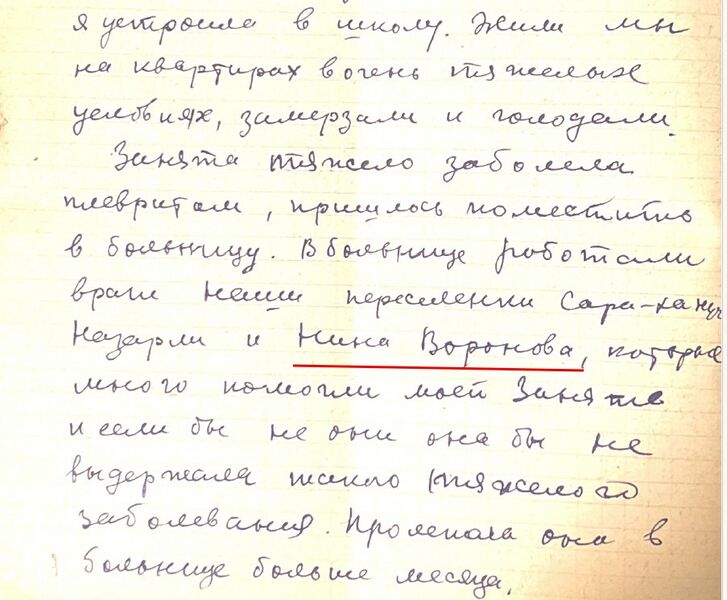 я устроила в школу. Жили мы
на квартирах в очень тяжелых
условиях, замерзали и голодали.
Занята тяжело заболела
плевритом, пришлось поместить
в больницу. В больнице работали
врачи наши переселенки Сара-ханум
Назарли и Нина Воронова, которые
много помогли моей Заняте
и если бы не они она бы не
выдержала такого тяжелого
заболевания. Пролежала она в
больнице больше месяца.